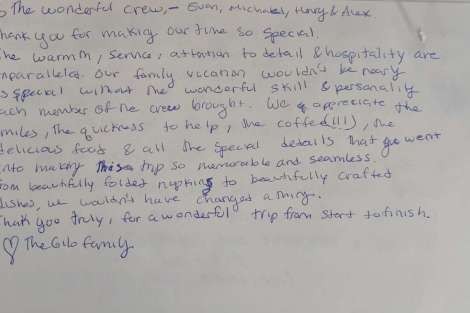 o The wonderful crew,- Evan, Michael, Henry & Alex
hank you for making our time so special.
he warmth, service, attention to detail & hospitality are
nparalleled. Our family vacation wouldn't be nearly
s special without the wonderful skill & personality
ach member of the crew brought. We appreciate the
miles, the quickness to help, the coffee(!!!), the
delicious food & all the special details that went
nto making this trip so memorable and seamless.
rom beautifully folded napkins to beautifully crafted
dishes, we wouldn't have changed a thing.
hank you truly, for a wonderful trip from start to finish.
♡ The Gilo family